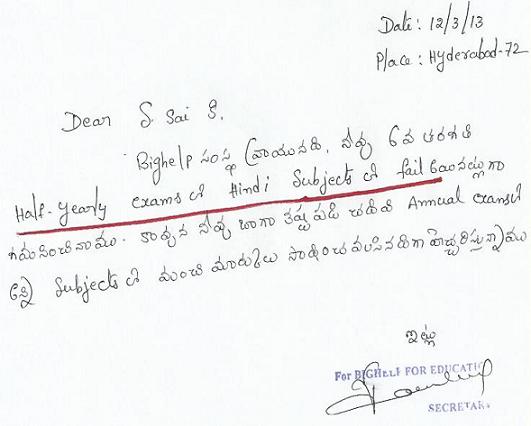 Date: 12/3/13
Place: Hyderabad-72
Dear S. Sai K.
Bighelp సంస్థ వ్రాయునది, నీవు 6వ తరగతి
Half-Yearly exams లో Hindi Subjects లో fail అయినట్లుగా
గమనించినాము. కావున నీవు బాగా కష్టపడి చదివి Annual exams లో
అన్ని Subjects లో మంచి మార్కులు సాధించవలసినదిగా హెచ్చరిస్తున్నాము
ఇట్లు
For BIGHELP FOR EDUCATIO
SECRETARY